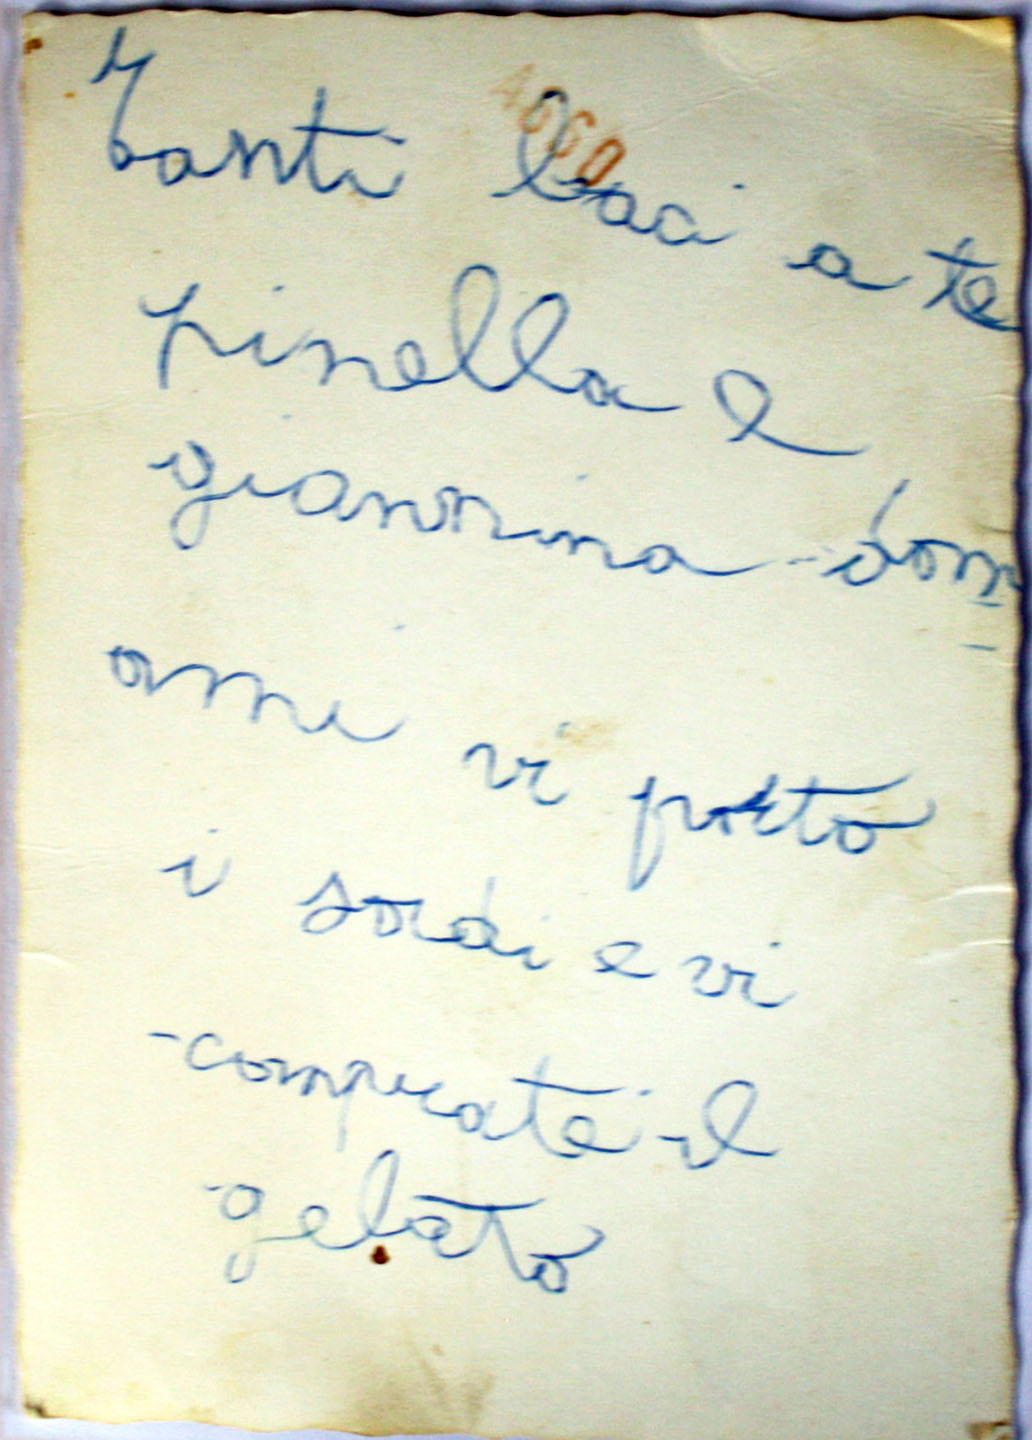 Tanti baci a te
pinella e
giannina dom
ani vi porto
i sordi e vi
-comprate il
gelato